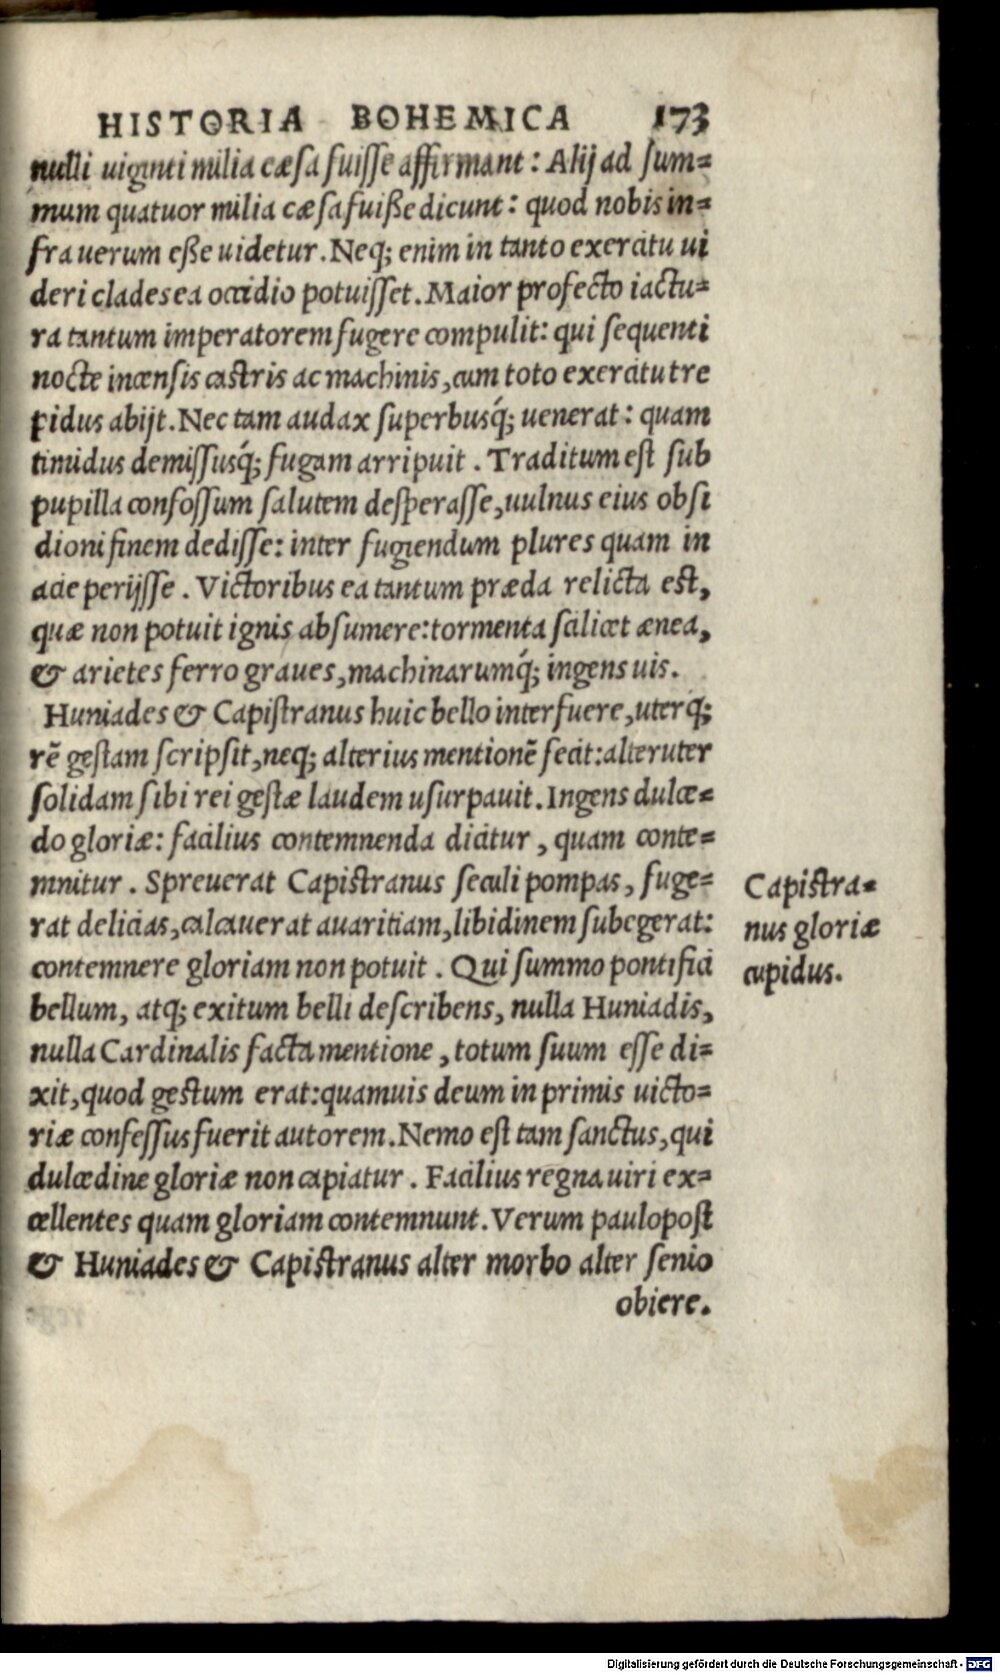 HISTORIA BOHEMICA 173
nulli uiginti milia cæsa fuisse affirmant: Alij ad sum=
mum quatuor milia cæsa fuiße dicunt: quod nobis in=
fra uerum eße uidetur. Neq; enim in tanto exercitu ui
deri clades ea occidio potuisset. Maior profecto iactu=
ra tantum imperatorem fugere compulit: qui sequenti
nocte incensis castris ac machinis, cum toto exercitu tre
pidus abijt. Nec tam audax superbusq́; uenerat: quam
timidus demissusq́; fugam arripuit. Traditum est sub
pupilla confossum salutem desperasse, uulnus eius obsi
dioni finem dedisse: inter fugiendum plures quam in
acie perijsse. Victoribus ea tantum præda relicta est,
quæ non potuit ignis absumere: tormenta scilicet ænea,
& arietes ferro graues, machinarumq́; ingens uis.
Huniades & Capistranus huic bello interfuere, uterq;
rē gestam scripsit, neq; alterius mentionē fecit: alteruter
solidam sibi rei gestæ laudem usurpauit. Ingens dulce=
do gloriæ: facilius contemnenda dicitur, quam conte=
mnitur. Spreuerat Capistranus seculi pompas, fuge=
rat delicias, calcauerat auaritiam, libidinem subegerat:
contemnere gloriam non potuit. Qui summo pontifici
bellum, atq; exitum belli describens, nulla Huniadis,
nulla Cardinalis facta mentione, totum suum esse di=
xit, quod gestum erat: quamuis deum in primis uicto=
riæ confessus fuerit autorem. Nemo est tam sanctus, qui
dulcedine gloriæ non capiatur. Facilius regna uiri ex=
cellentes quam gloriam contemnunt. Verum paulo post
& Huniades & Capistranus alter morbo alter senio
obiere.
Capistra=
nus gloriæ
cupidus.
Digitalisierung gefördert durch die Deutsche Forschungsgemeinschaft - DFG